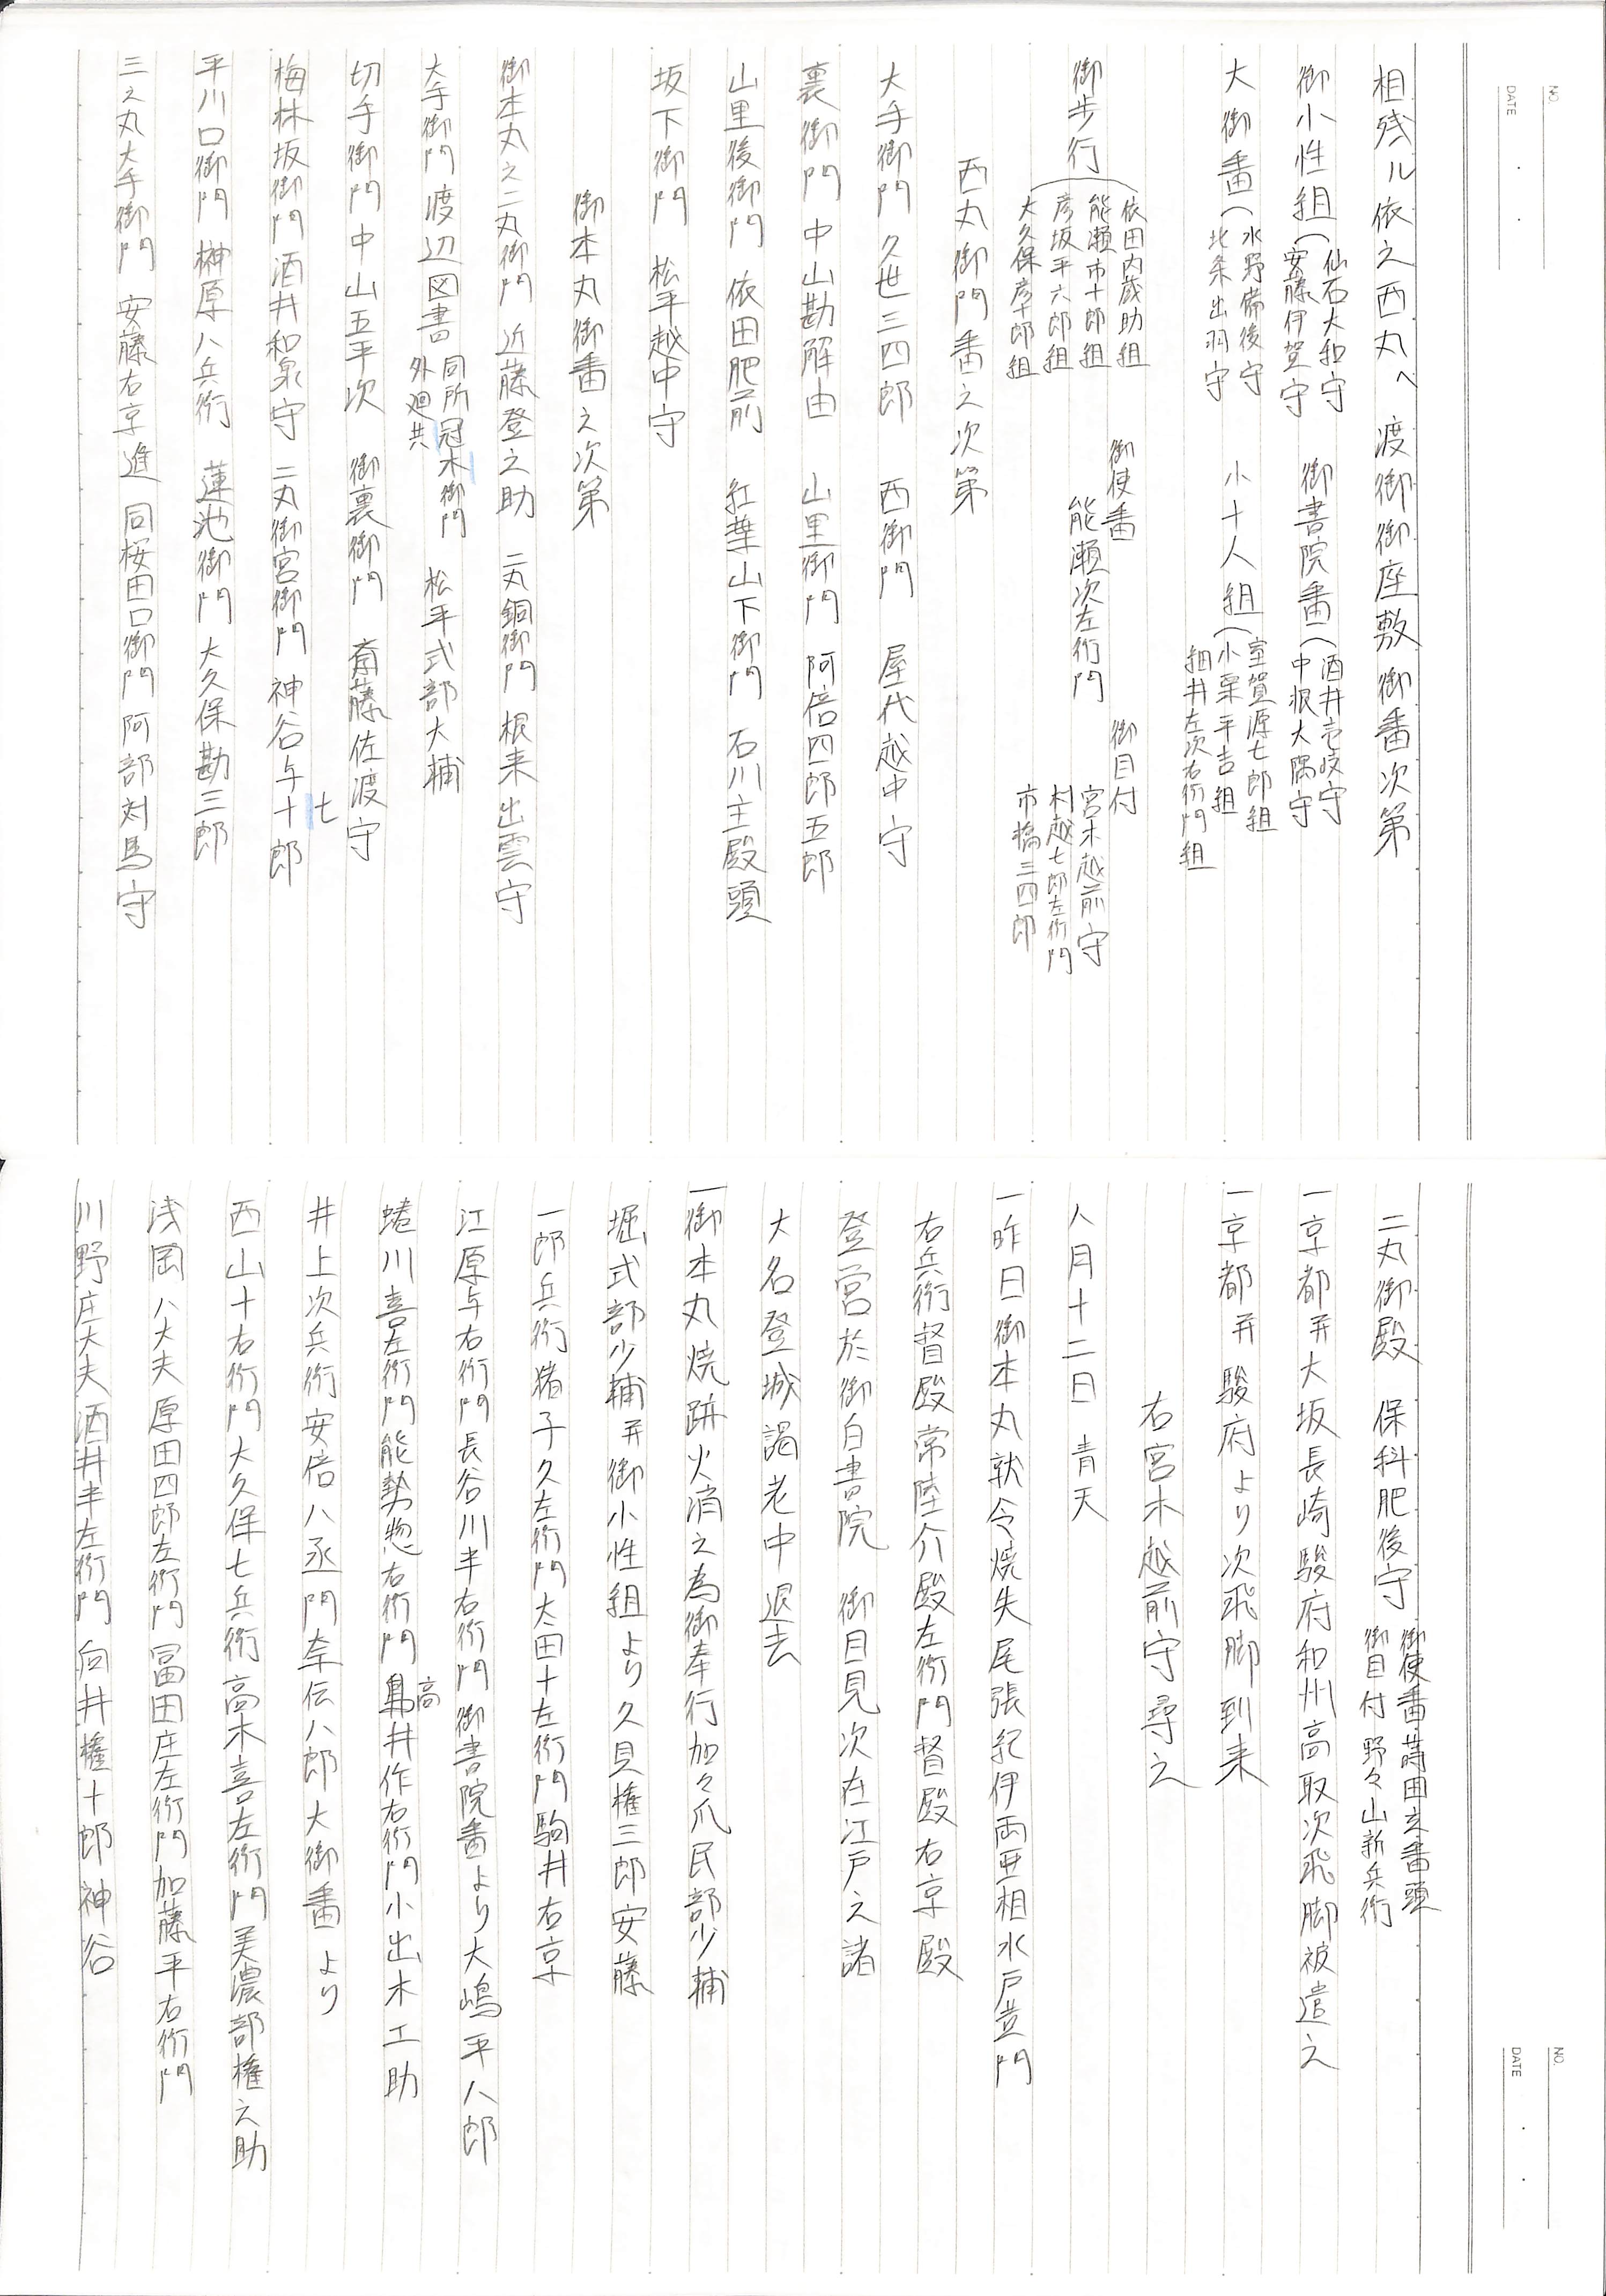 NO.
DATE
相残ル依之西丸へ渡御御座敷御番次第
御小性組(仙石大和守
安藤伊賀守
御書院番(酒井壱岐守
中根大隅守
大御番(水野備後守
北条出羽守
小十人組(室賀源七郎組
小栗平吉組
押井左次右衛門組
御歩行(依田内蔵助組
能瀬市十郎組
彦坂平六郎組
大久保彦十郎組
御使番
能瀬次左衛門
御目付
宮木越前守
村越七郎左衛門
市橋三四郎
西丸御門番之次第
大手御門 久世三四郎 西御門 屋代越中守
裏御門 中山勘解由 山里御門 阿倍四郎五郎
山里後御門 依田肥前 紅葉山下御門 石川主殿頭
坂下御門 松平越中守
御本丸御番之次第
御本丸之二丸御門 近藤登之助 二丸銅御門 根来出雲守
大手御門 渡辺図書 同所冠木御門
外廻共 松平式部大輔
切手御門 中山五平次 御裏御門 斎藤佐渡守
梅林坂御門 酒井和泉守 二丸御宮御門 神谷与十郎
七
平川口御門 榊原八兵衛 蓮池御門 大久保勘三郎
三之丸大手御門 安藤右京進 同桜田口御門 阿部対馬守
NO.
DATE
二丸御殿 保科肥後守 御使番蒔田玄番頭
御目付野々山新兵衛
一京都并大坂長崎駿府和州高取次飛脚被遣之
一京都并駿府より次飛脚到来
右宮木越前守尋之
八月十二日 青天
一昨日御本丸就令焼失尾張紀伊両亜相水戸黄門
右兵衛督殿常陸介殿左衛門督殿右京殿
登営於御白書院 御目見次在江戸之諸
大名登城謁老中退去
一御本丸焼跡火消之為御奉行加々爪民部少輔
堀式部少輔并御小性組より久貝権三郎安藤
一郎兵衛猪子久左衛門太田十左衛門駒井右京
江原与右衛門長谷川半右衛門御書院番より大嶋平八郎
蜷川喜左衛門能勢惣右衛門鳥井作右衛門小出木工助
高
井上次兵衛安倍八丞門奈伝八郎大御番より
西山十右衛門大久保七兵衛高木喜左衛門美濃部権之助
浅岡八大夫原田四郎左衛門冨田庄左衛門加藤平右衛門
川野庄大夫酒井半左衛門向井権十郎神谷